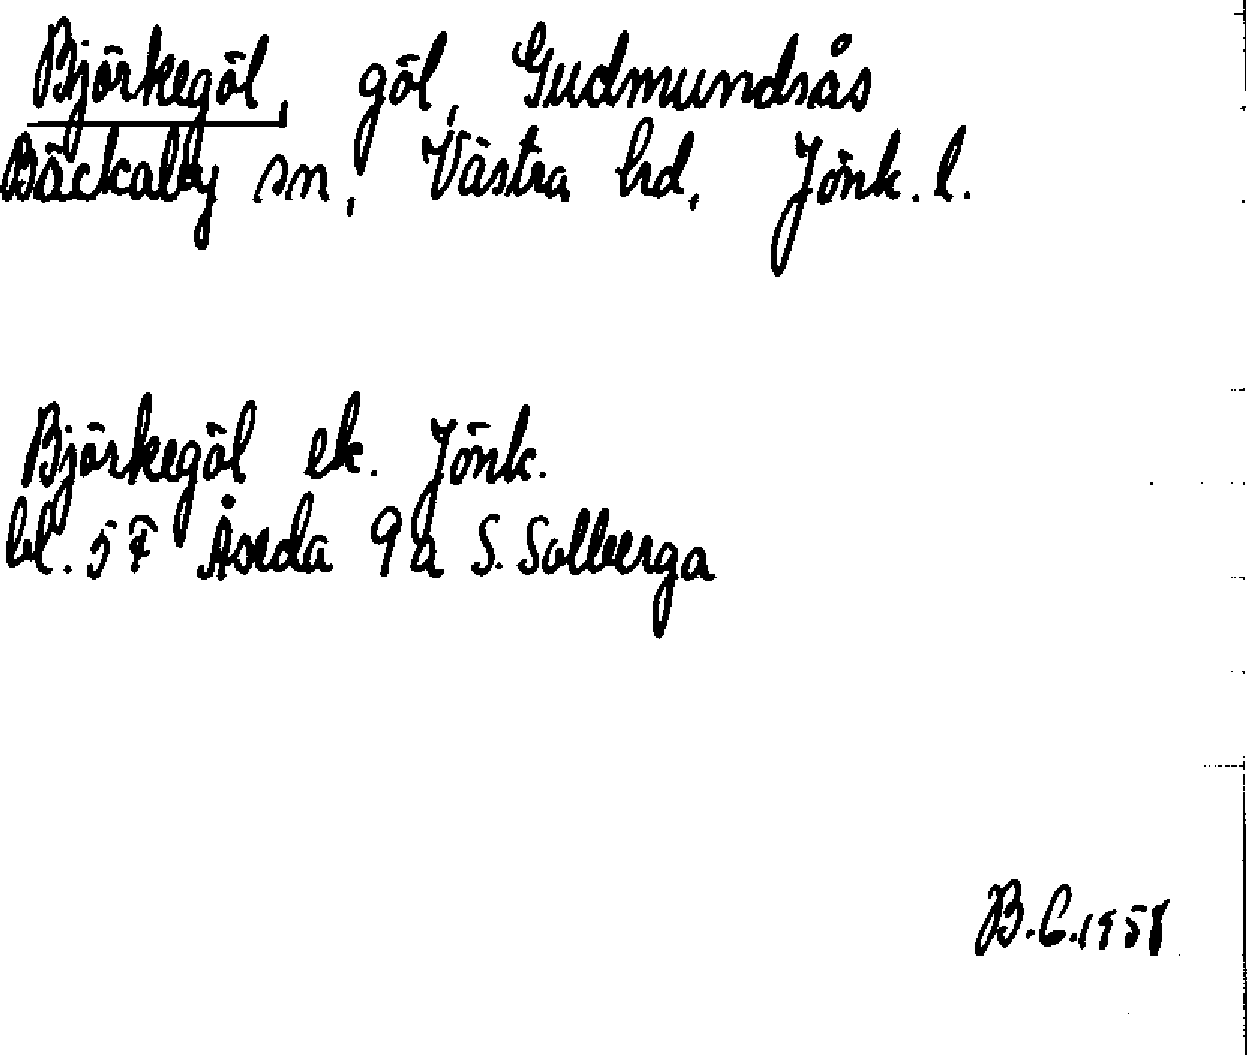 Björkegöl, göl, Gudmundsås
Bäckaby sn, Västra hd, Jönk. l.
Björkegöl ek. Jönk.
bl. 57 Åseda 9a S. Solberga
B.C. 1958